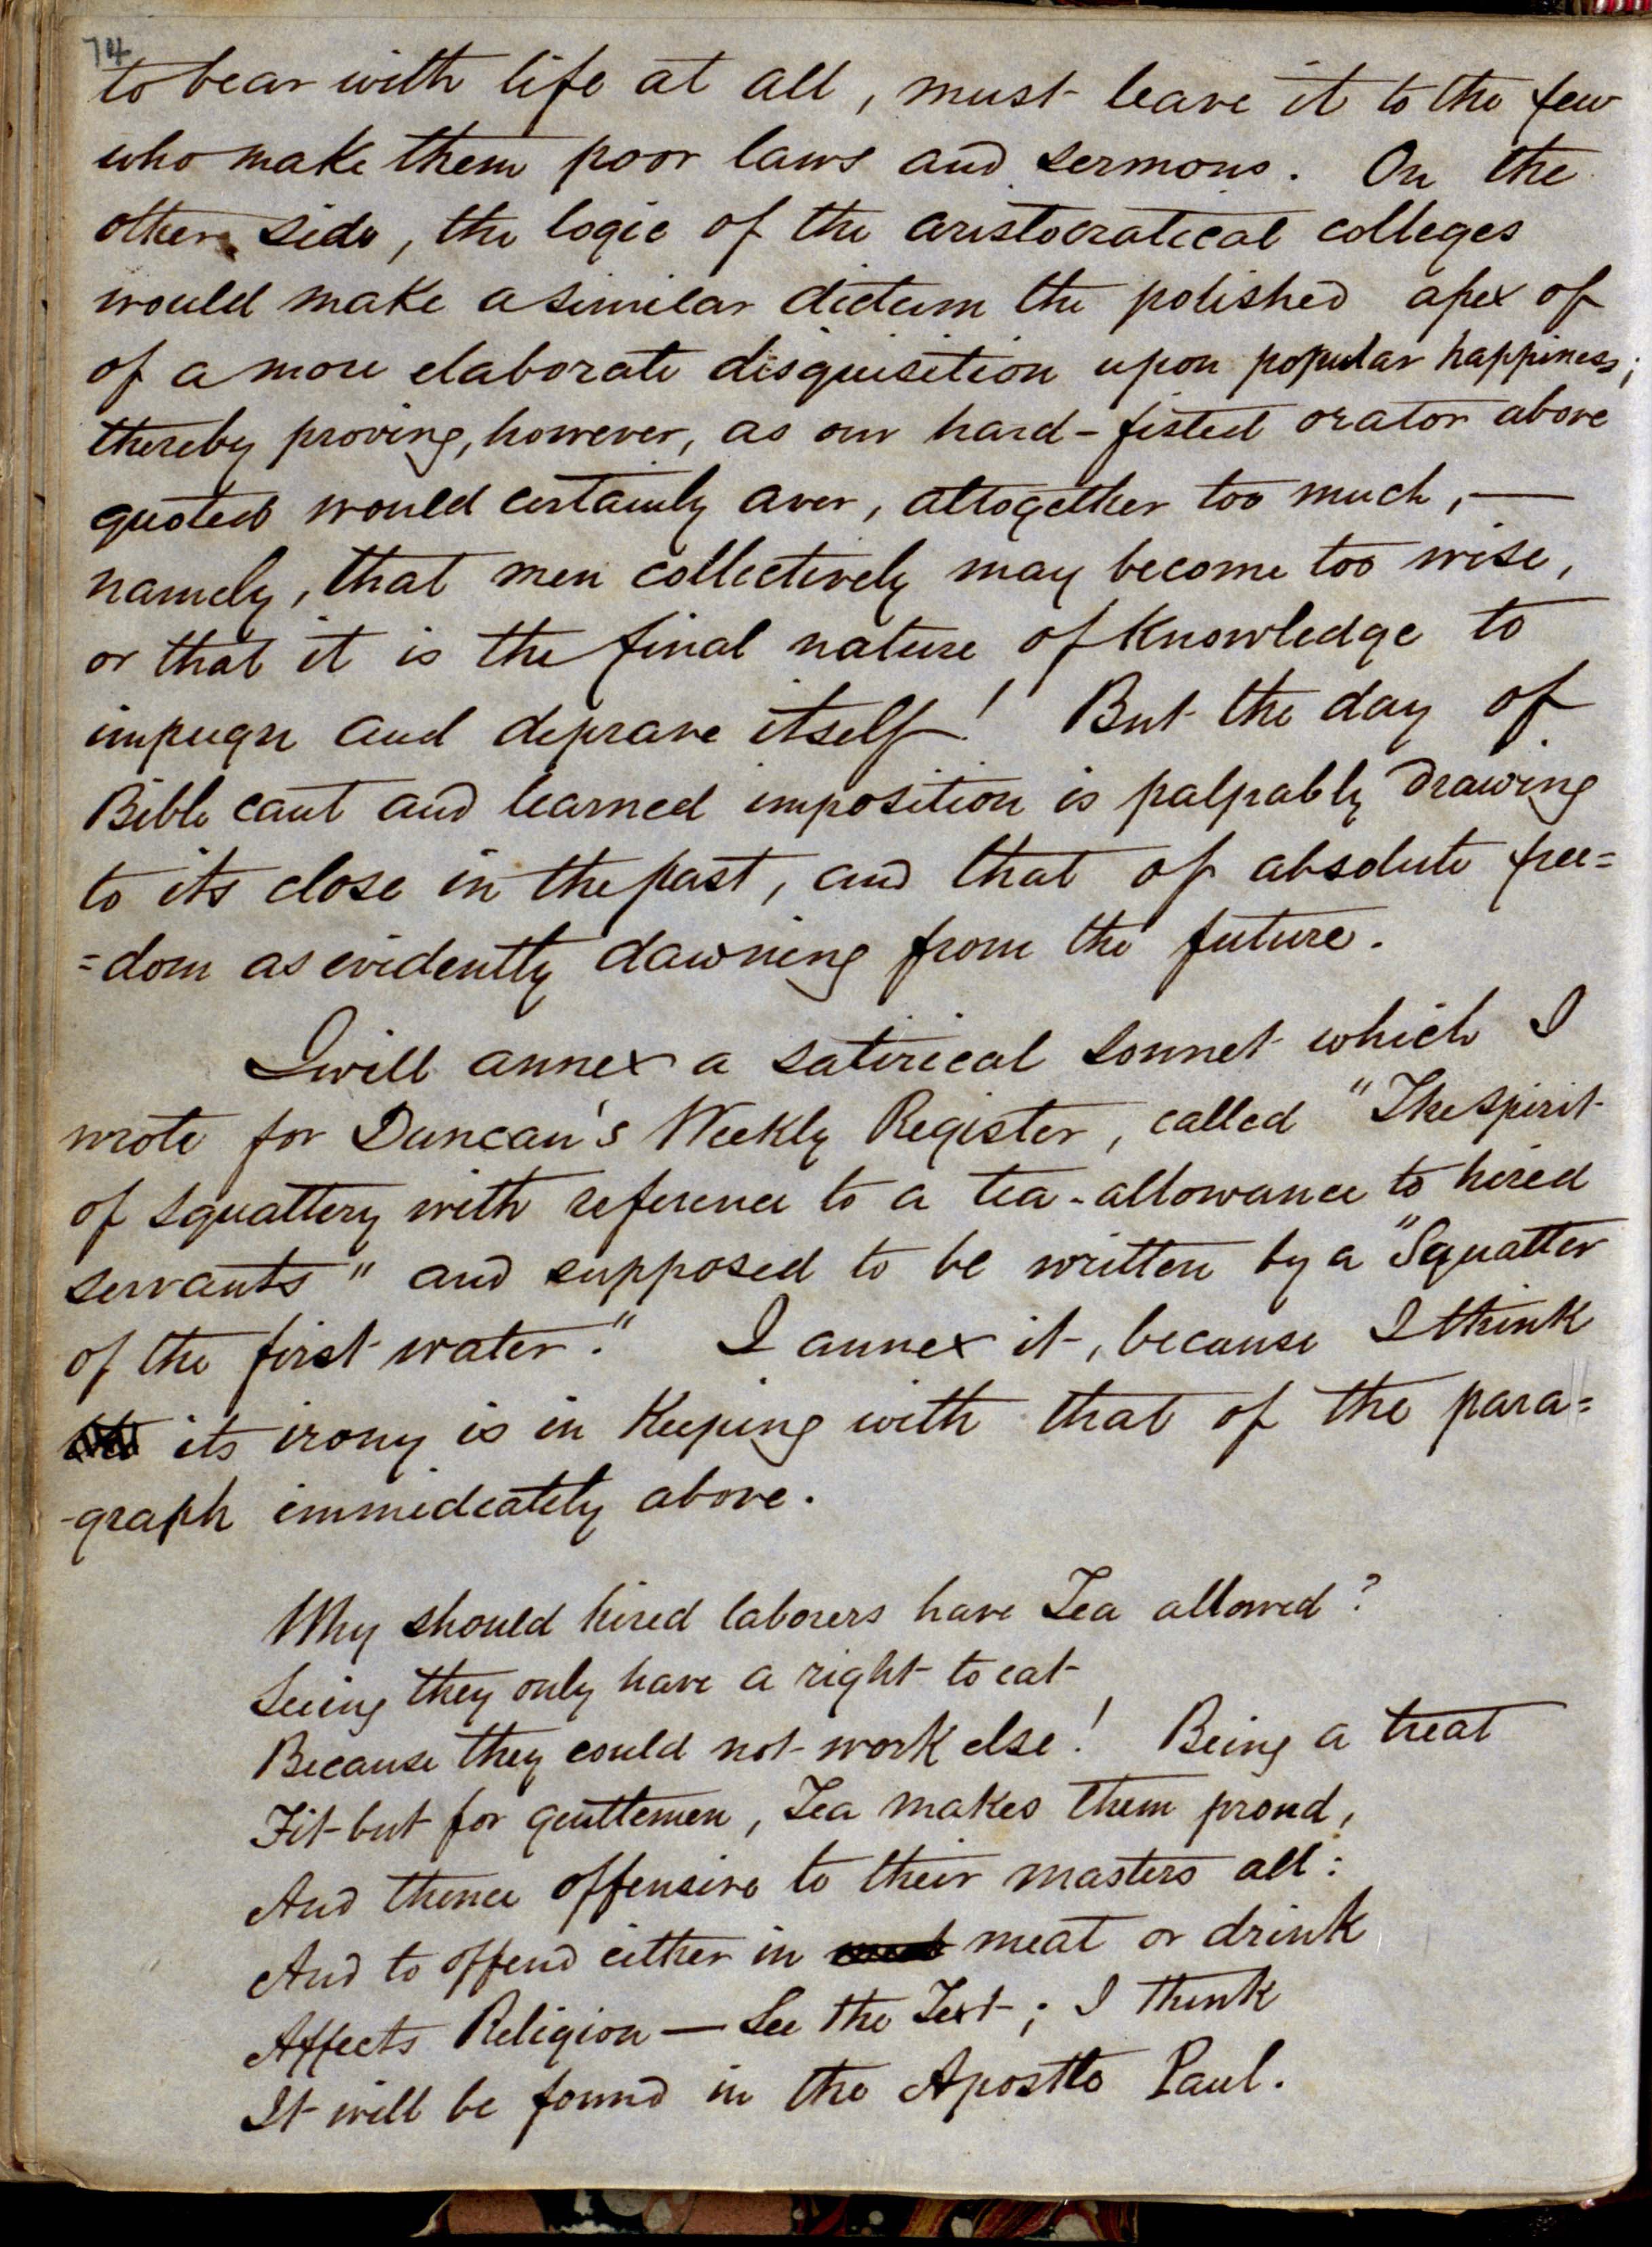 74
to bear with life at all, must leave it to the few
who make them poor laws and sermons. On the
other side, the logic of the aristocratical colleges
would make a similar dictum the polished apex of
of a more elaborate disquisition upon popular happiness;
thereby proving, however, as our hard-fisted orator above
quoted would certainly aver, altogether too much, —
namely, that men collectively may become too wise,
or that it is the final nature of Knowledge to
impugn and deprave itself! But the day of
Bible cant and learned imposition is palpably drawing
to its close in the past, and that of absolute free=
=dom as evidently dawning from the future.
I will annex a satirical sonnet which I
wrote for Duncan's Weekly Register, called "The spirit
of squattery with reference to a tea-allowance to hired
servants" and supposed to be written by a "Squatter
of the first water." I annex it, because I think
its irony is in Keeping with that of the para=
-graph immediately above.
Why should hired laborers have Tea allowed?
Seeing they only have a right to eat
Because they could not work else! Being a treat
Fit but for gentlemen, Tea makes them proud,
And thence offensive to their masters all:
And to offend either in meat or drink
Affects Religion — See the Text; I think
It will be found in the Apostle Paul.